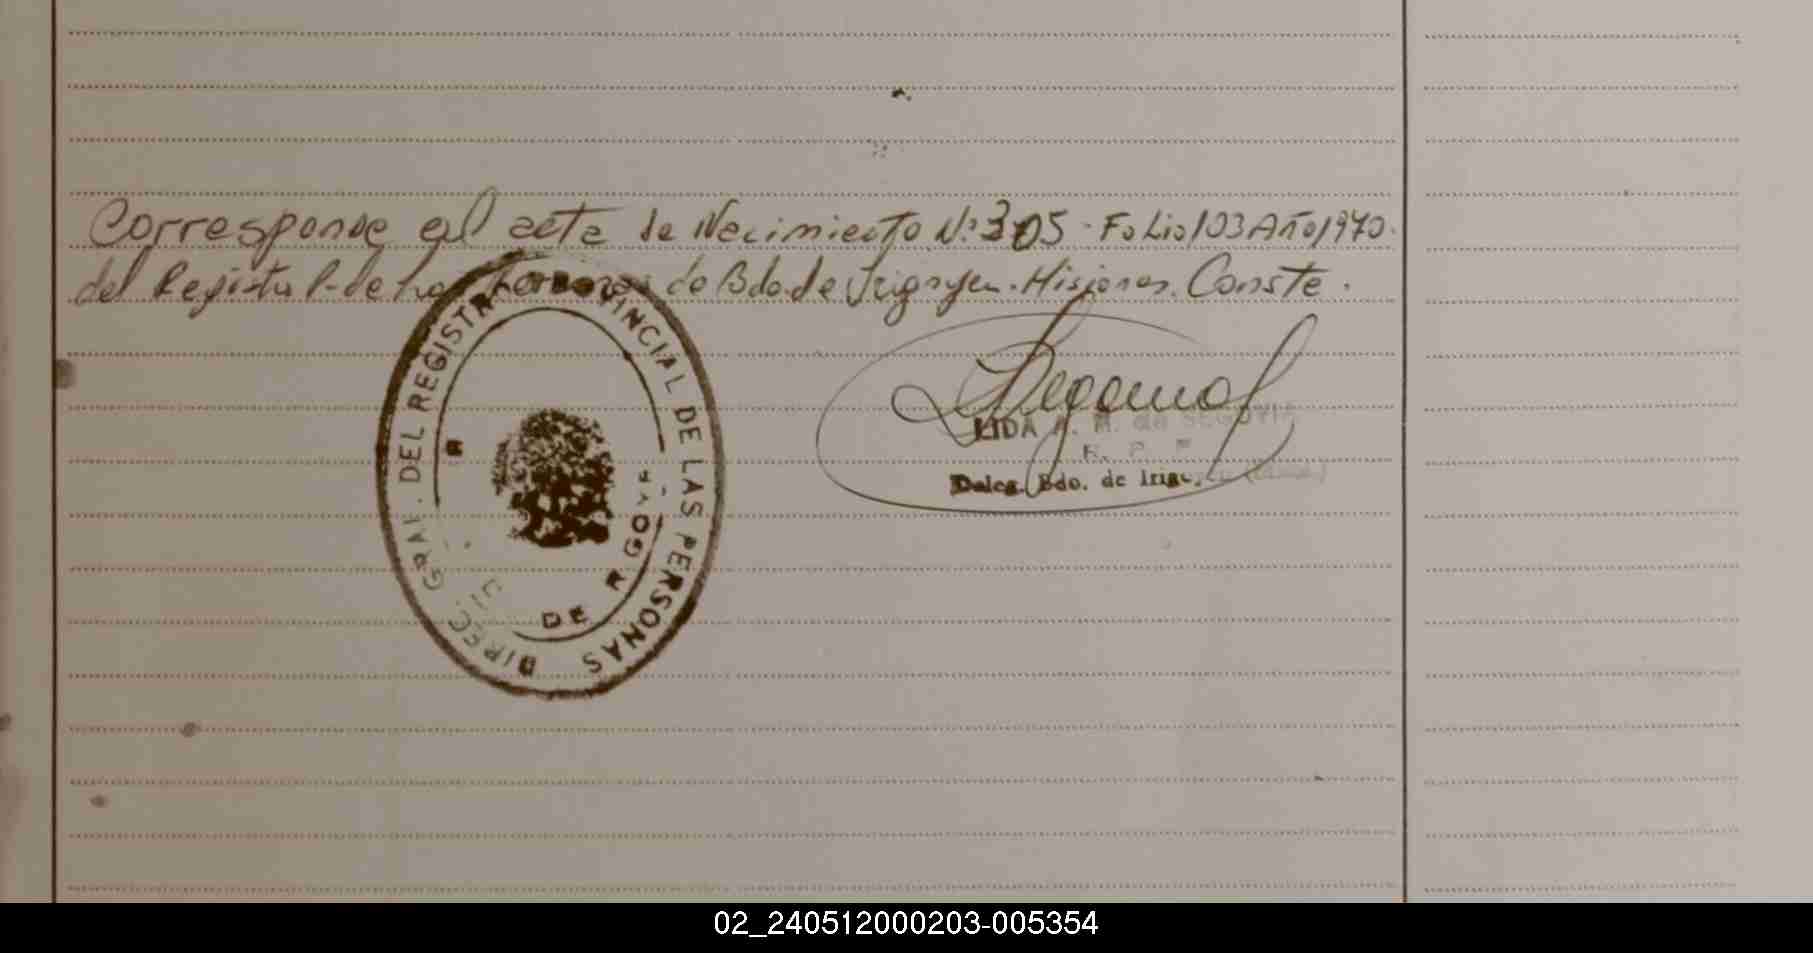 Corresponde al acta de Nacimiento N: 305 - Folio 103 Año 1970.
del Registro P. de las Personas de Bdo. de Irigoyen. Misiones. Conste.
DIREC GRAL. DEL REGISTRO PROVINCIAL DE LAS PERSONAS
DE IRIGOYE
LIDA A. M. de SEGOVIA
R. P. P.
Deleg. Bdo. de Irigoyen
02_240512000203-005354